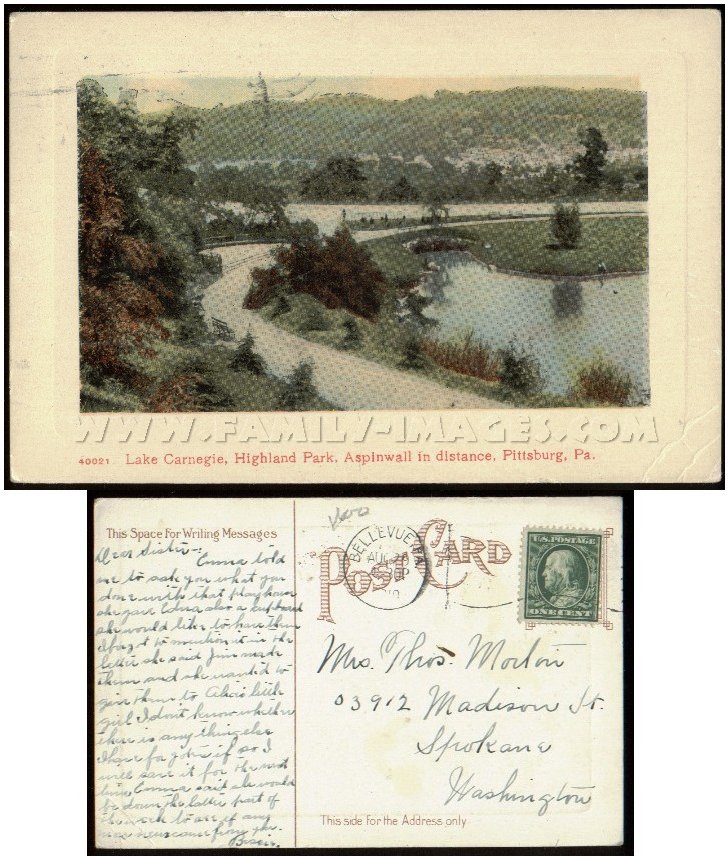 WWW.FAMILY-IMAGES.COM
40021 Lake Carnegie, Highland Park, Aspinwall in distance, Pittsburg, Pa.
This Space For Writing Messages
POST CARD
BELLEVUE
AUG
U.S. POSTAGE
ONE CENT
Dear Sister:-
Emma told
me to ask you what you
done with that playhouse
she gave Edna also a cupboard
she would like to have them
I forgot to mention it in the
letter she said Jim made
them and she wanted to
give them to Alice's little
girl I don't know whether
there is any thing else
I have for you if so I
will save it for the next
time Emma said she would
be down the latter part of
the week to see if any
news came from you.
Mrs. Thos. Morton
03912 Madison St.
Spokane
Washington
This side for the Address only